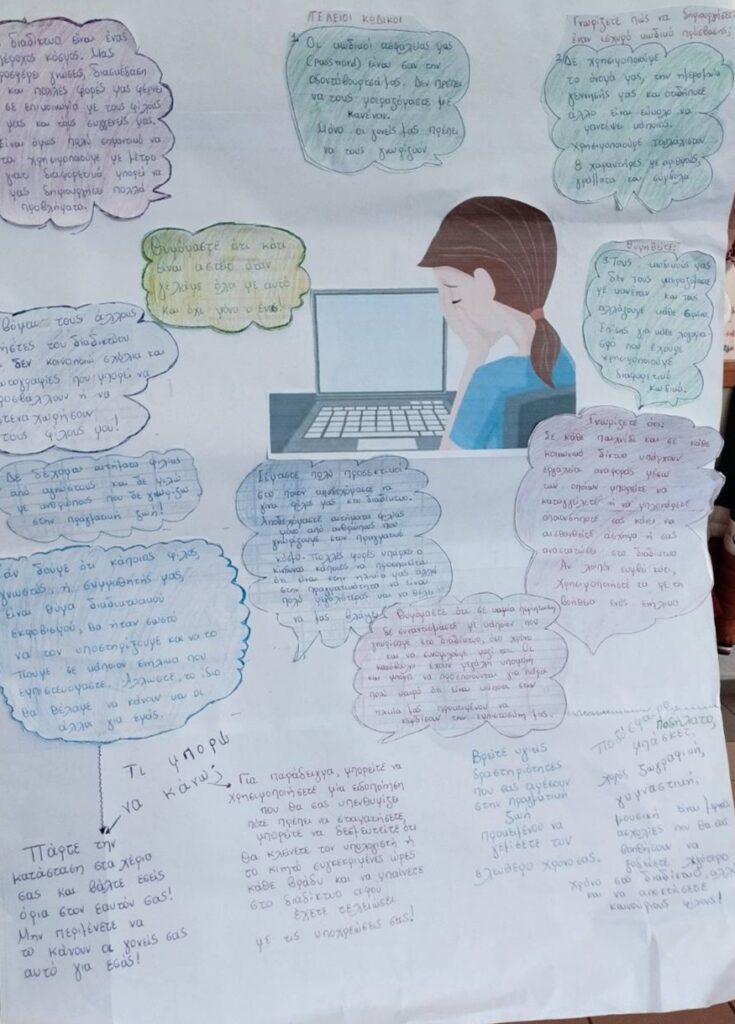 διαδίκτυο είναι ένας
κόσμος. Μας
προσφέρει γνώσεις, διασκέδαση
και πολλές φορές μας φέρνει
σε επικοινωνία με τους φίλους
μας και τους συγγενείς μας.
Είναι όμως πολύ σημαντικό να
το χρησιμοποιούμε με μέτρο
γιατί διαφορετικά μπορεί να
μας δημιουργήσει πολλά
προβλήματα.
ΤΕΛΕΙΟΙ ΚΩΔΙΚΟΙ
1. Οι κωδικοί ασφαλείας μας
(password) είναι σαν την
οδοντόβουρτσά μας. Δεν πρέπει
να τους μοιραζόμαστε με
κανέναν.
Μόνο οι γονείς μας πρέπει
να τους γνωρίζουν
Γνωρίζετε πώς να δημιουργήσετε
έναν ισχυρό κωδικό πρόσβασης;
2. Δε χρησιμοποιούμε
το όνομά μας, την ημερομηνία
γέννησής μας και οτιδήποτε
άλλο είναι εύκολο να
μαντέψει κάποιος.
Χρησιμοποιούμε τουλάχιστον
8 χαρακτήρες με αριθμούς,
γράμματα και σύμβολα
Θυμόμαστε ότι κάτι
είναι αστείο όταν
γελάμε όλοι με αυτό
και όχι μόνο ο ένας.
Θυμηθείτε:
3. Τους κωδικούς μας
δεν τους μοιραζόμαστε
με κανέναν και τους
αλλάζουμε κάθε 6μηνο.
Επίσης για κάθε λογαρια
σμό που έχουμε
χρησιμοποιούμε
διαφορετικό
κωδικό.
τους άλλους
χρήστες του διαδικτύου
δεν κοινοποιώ σχόλια και
φωτογραφίες που μπορεί να
προσβάλλουν ή να
στεναχωρήσουν
τους φίλους μου!
Δε δέχομαι αιτήματα φιλίας
από αγνώστους και δε μιλώ
με ανθρώπους που δε γνωρίζω
στην πραγματική ζωή!
Είμαστε πολύ προσεκτικοί
στο ποιον αποδεχόμαστε να
γίνει φίλος μας στο διαδίκτυο.
Αποδεχόμαστε αιτήματα φιλίας
μόνο από ανθρώπους που
γνωρίζουμε στον πραγματικό
κόσμο. Πολλές φορές υπάρχει ο
κίνδυνος κάποιος να προσποιείται
ότι είναι στην ηλικία μας αλλά
στην πραγματικότητα να είναι
πολύ μεγαλύτερος και να θέλει
να μας βλάψει
Γνωρίζετε ότι:
Σε κάθε παιχνίδι και σε κάθε
κοινωνικό δίκτυο υπάρχουν
εργαλεία αναφοράς μέσω
των οποίων μπορείτε να
καταγγείλετε ή να μπλοκάρετε
οποιονδήποτε σας κάνει να
αισθανθείτε άσχημα ή σας
αναστατώσει στο διαδίκτυο
Αν λοιπόν συμβεί κάτι,
χρησιμοποιήστε τα με τη
βοήθεια ενός ενήλικα
Εάν δούμε ότι κάποιος φίλος,
γνωστός, ή συμμαθητής μας,
είναι θύμα διαδικτυακού
εκφοβισμού, θα ήταν σωστό
να τον υποστηρίξουμε και να το
πούμε σε κάποιον ενήλικα που
εμπιστευόμαστε. Άλλωστε, το ίδιο
θα θέλαμε να κάνουν και οι
άλλοι για εμάς.
Θυμόμαστε ότι σε καμία περίπτωση
δε συναντιόμαστε με κάποιον που
γνωρίσαμε στο διαδίκτυο, όσο χρόνο
και να συνομιλούμε μαζί του. Οι
κακόβουλοι έχουν μεγάλη υπομονή
και μπορεί να προσποιούνται για πάρα
πολύ καιρό ότι είναι κάποιοι στην
ηλικία μας προκειμένου να
κερδίσουν την εμπιστοσύνη μας.
Τι μπορώ
να κάνω;
Πάρτε την
κατάσταση στα χέρια
σας και βάλτε εσείς
όρια στον εαυτόν σας!
Μην περιμένετε να
το κάνουν οι γονείς σας
αυτό για εσάς!
Για παράδειγμα, μπορείτε να
χρησιμοποιήσετε μία ειδοποίηση
που θα σας υπενθυμίζει
πότε πρέπει να σταματήσετε,
μπορείτε να δεσμευτείτε ότι
θα κλείνετε τον υπολογιστή ή
το κινητό συγκεκριμένες ώρες
κάθε βράδυ και να μπαίνετε
στο διαδίκτυο αφου
έχετε τελειώσει
με τις υποχρεώσεις σας!
Βρείτε υγιείς
δραστηριότητες
που σας αρέσουν
στην πραγματική
ζωή
προκειμένου να
γεμίσετε τον
ελεύθερο χρόνο σας.
Ποδόσφαιρο, Ποδήλατο,
μπάσκετ,
χορός ζωγραφική,
γυμναστική,
μουσική είναι μερικές
ασχολίες που θα σας
βοηθήσουν να
ξοδέψετε λιγότερο
χρόνο στο διαδίκτυο, αλλά
και να αποκτήσετε
καινούριους φίλους!